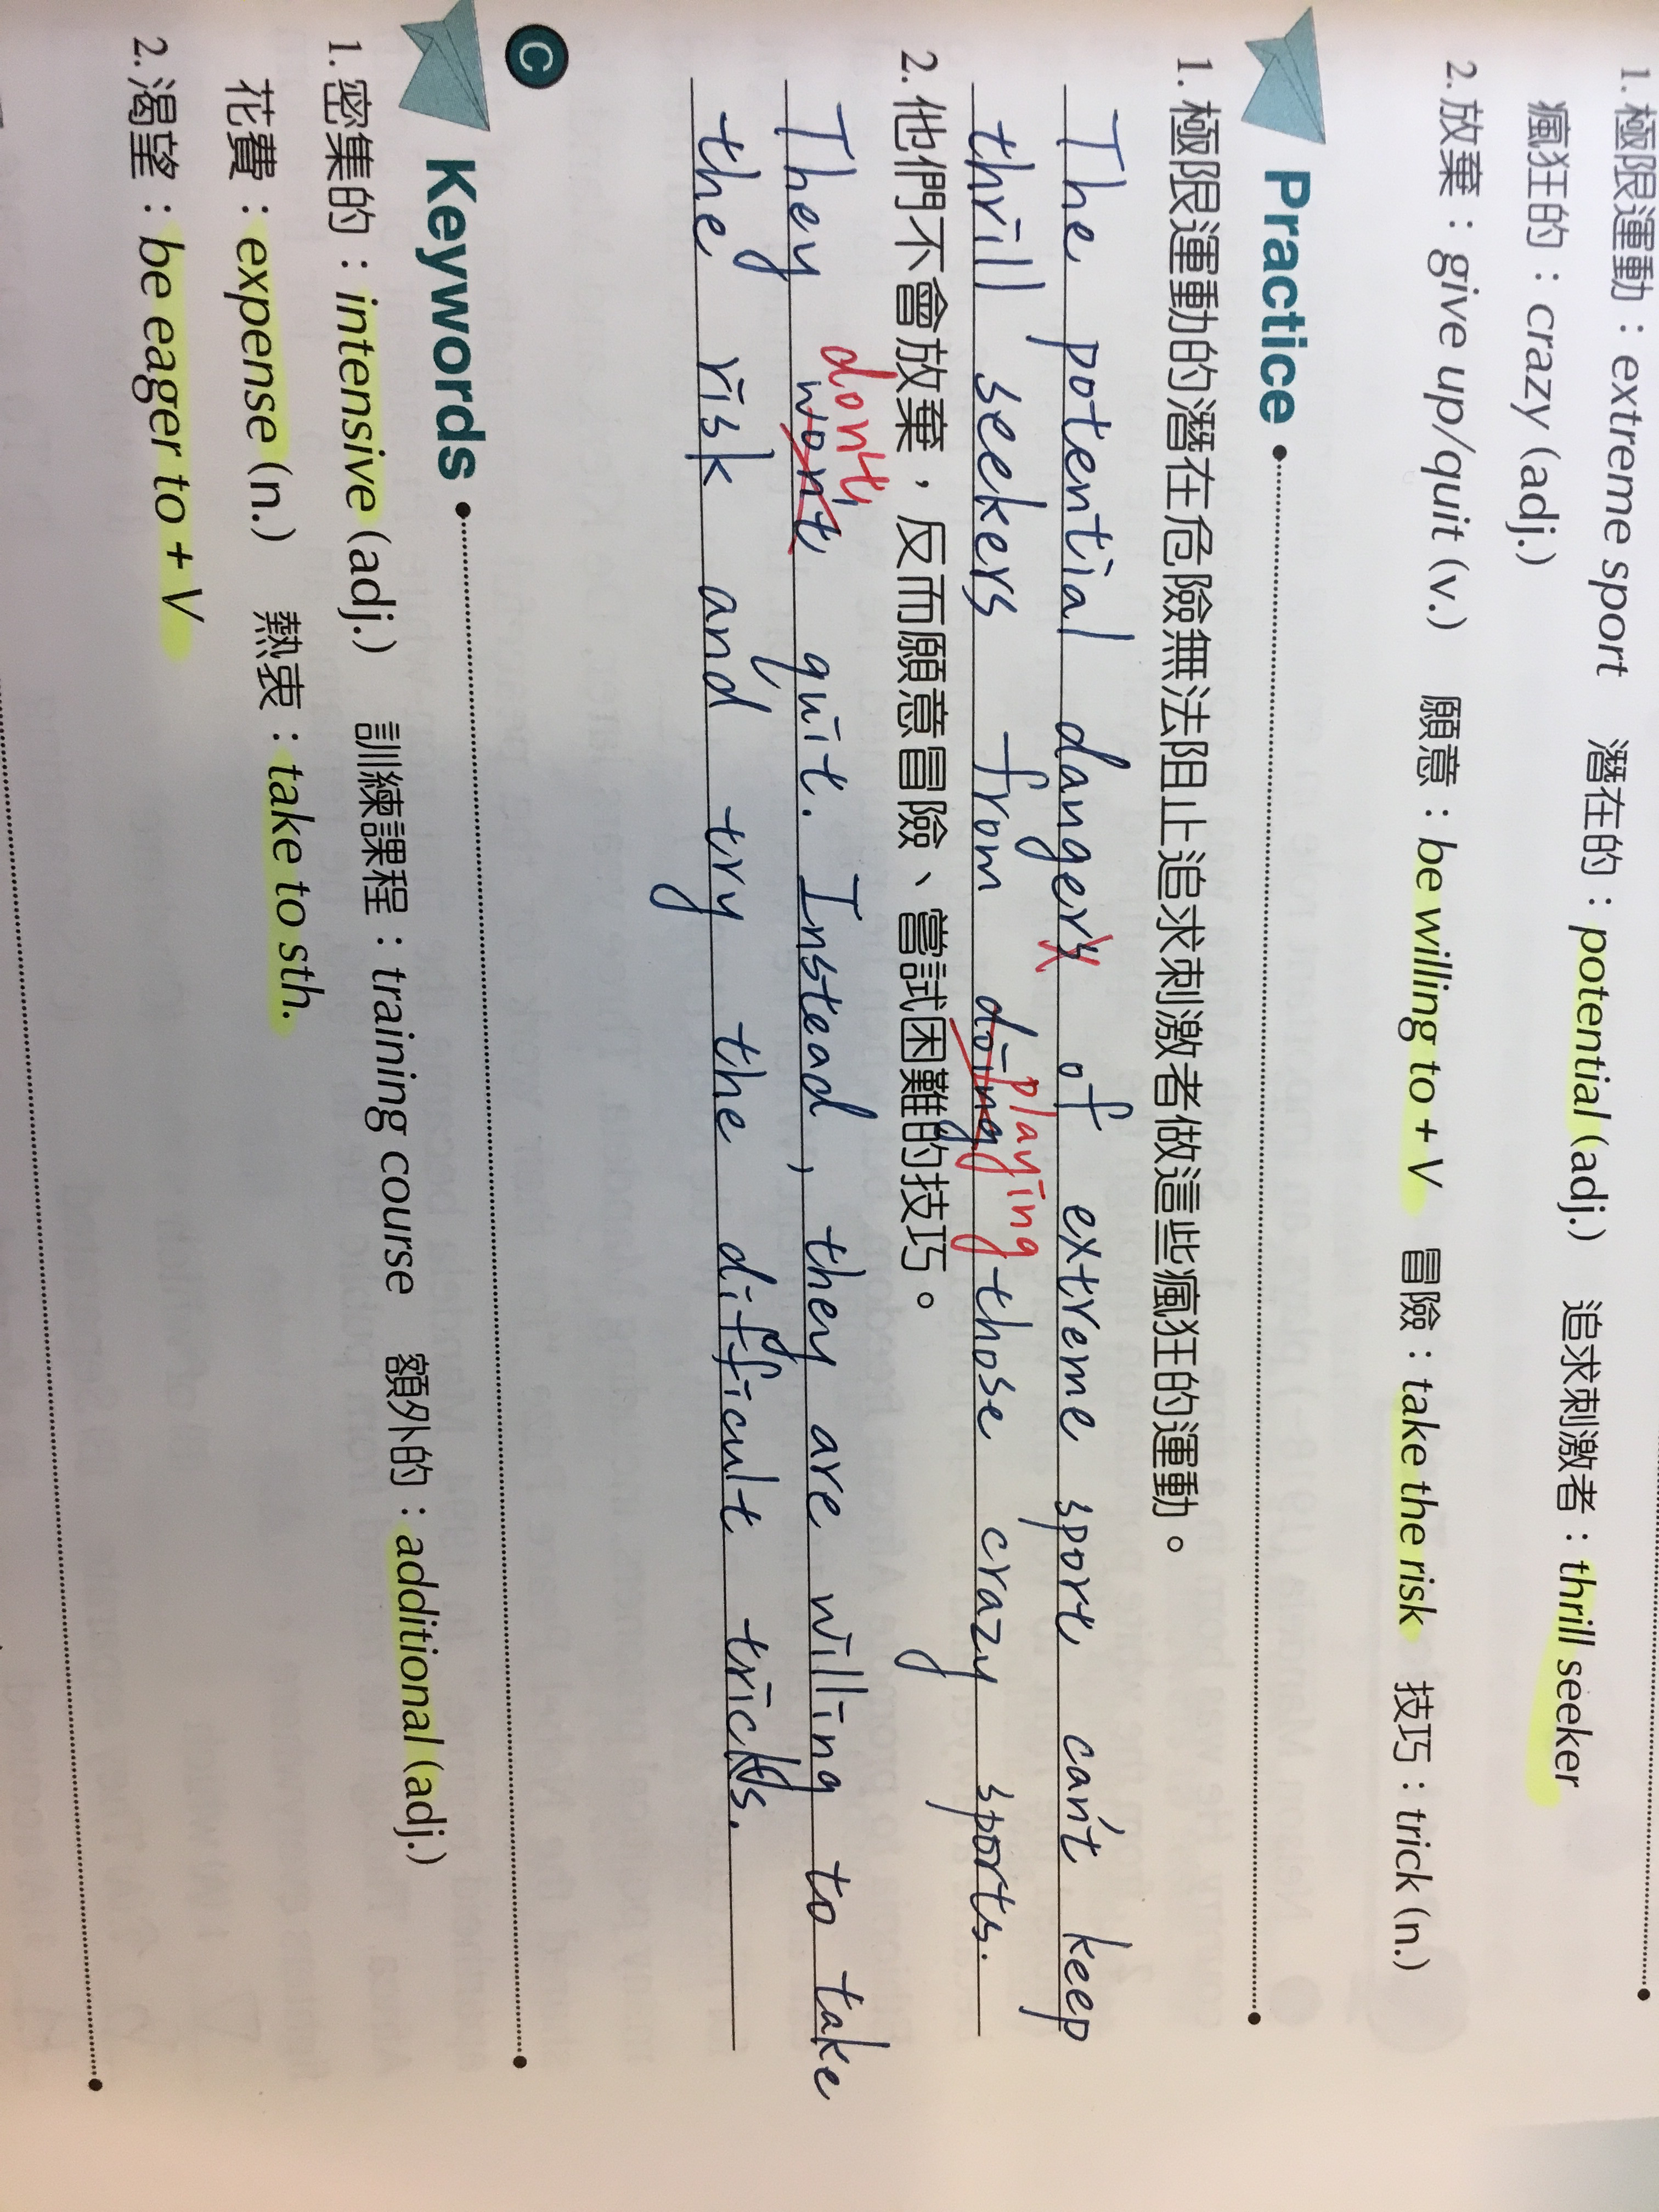 1. 極限運動：extreme sport　潛在的：potential (adj.)　追求刺激者：thrill seeker
瘋狂的：crazy (adj.)
2. 放棄：give up/quit (v.)　願意：be willing to + V　冒險：take the risk　技巧：trick (n.)
Practice
1. 極限運動的潛在危險無法阻止追求刺激者做這些瘋狂的運動。
The potential dangers of extreme sport can't keep
playing
thrill seekers from doing those crazy sports.
2. 他們不會放棄，反而願意冒險、嘗試困難的技巧。
don't
They won't quit. Instead, they are willing to take
the risk and try the difficult tricks.
C
Keywords
1. 密集的：intensive (adj.)　訓練課程：training course　額外的：additional (adj.)
花費：expense (n.)　熱衷：take to sth.
2. 渴望：be eager to + V